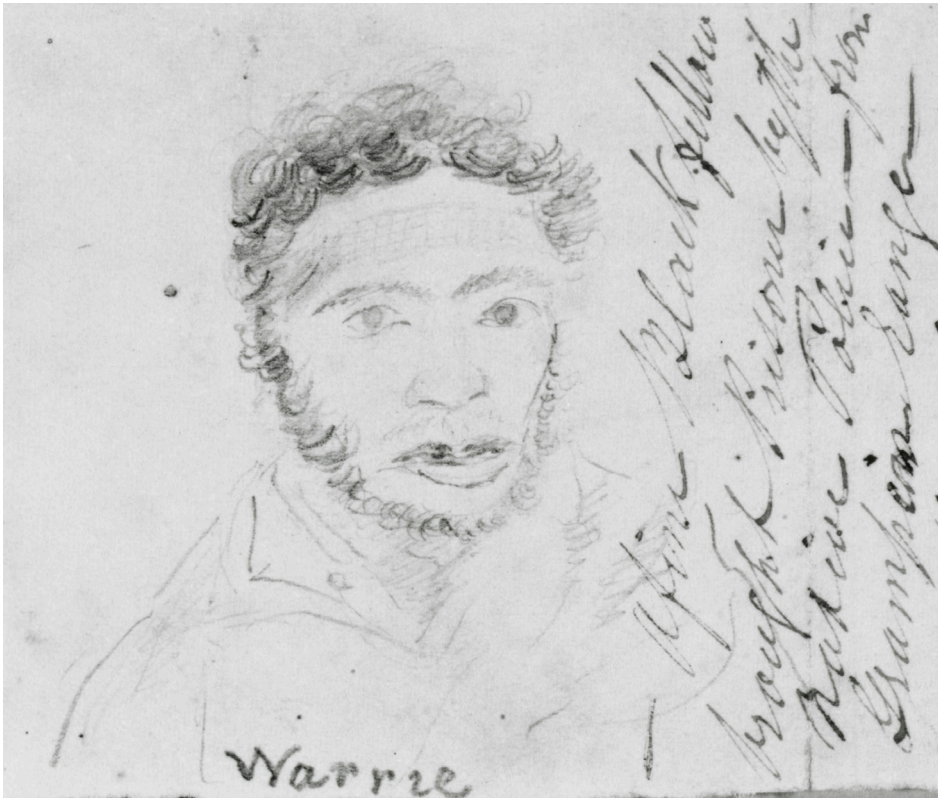 A fine Black fellow
brought Prisoner by the
Native Police — from
Grampian Range —
Warrie